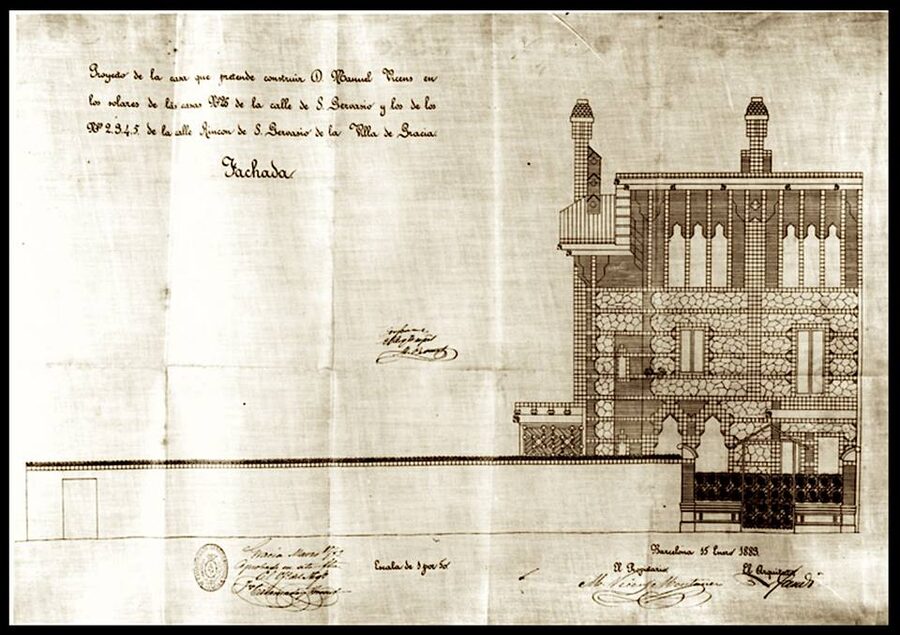 Proyecto de la casa que pretende construir D. Manuel Vicens en
los solares de las casas Nº 26 de la calle de S. Gervasio y los de los
Nº 2.3.4.5. de la calle Rincon de S. Gervasio de la Villa de Gracia.
Fachada
Gracia Marzo
Aprobado en este
Escala de 1 por 50
Barcelona 15 Enero 1883.
El Propietario
El Arquitecto
M. Vicens y Montaner
Gaudí